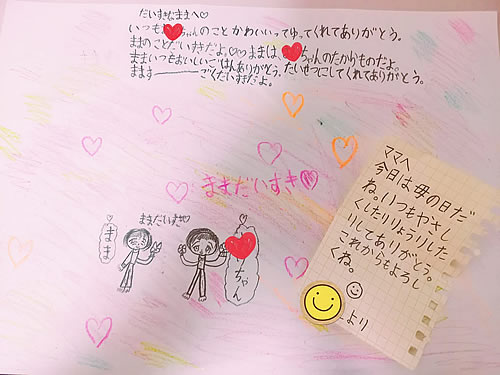 だいすきなままへ♡
いつも❤ちゃんのことかわいいってゆってくれてありがとう。
ままのことだいすきだよ。♡♡ままは、❤ちゃんのたからものだよ。
ままいつもおいしいごはんありがとう。たいせつにしてくれてありがとう。
まます――――ごくだいすきだよ。
ままだいすき♡
ままだいすき♡
まま
❤ちゃん
ママへ
今日は母の日だ
ね。いつもやさし
くしたりりょうりした
りしてありがとう。
これからもよろし
くね。☺
より